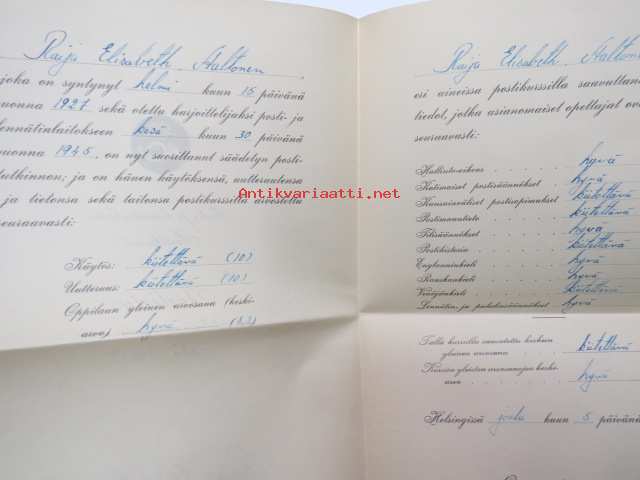 Raija Elisabeth Aaltonen,
joka on syntynyt helmi kuun 15 päivänä
vuonna 1927 sekä otettu harjoittelijaksi posti- ja
lennätinlaitokseen kesä kuun 30 päivänä
vuonna 1945, on nyt suorittanut säädetyn posti-
tutkinnon; ja on hänen käytöksensä, uutteruutensa
ja tietonsa sekä taitonsa postikurssilla arvosteltu
seuraavasti:
Käytös: kiitettävä (10)
Uutteruus: kiitettävä (10)
Oppilaan yleinen arvosana (keski-
arvo) hyvä (8,3)
Antikvariaatti.net
Raija Elisabeth Aaltone
eri aineissa postikurssilla saavuttan
tiedot, jotka asianomaiset opettajat ov
seuraavasti:
Hallinto-oikeus hyvä
Kotimaiset postisäännökset hyvä
Kansainväliset postisopimukset kiitettävä
Postimaantieto kiitettävä
Tilisäännökset hyvä
Postihistoria kiitettävä
Englanninkieli hyvä
Ranskankieli hyvä
Venäjänkieli kiitettävä
Lennätin- ja puhelinsäännökset hyvä
Tällä kurssilla saavutettu korkein
yleinen arvosana kiitettävä
Kurssin yleisten arvosanojen keski-
arvo hyvä
Helsingissä joulu kuun 5 päivänä